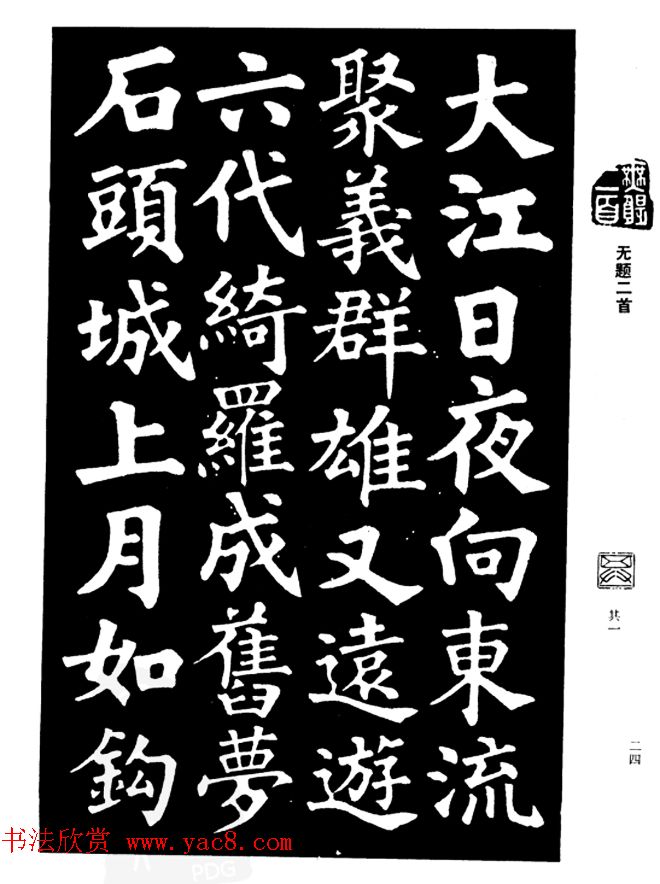 大江日夜向東流
聚義群雄又遠遊
六代綺羅成舊夢
石頭城上月如鈎
无题二首
其一
二四
书法欣赏 www.yac8.com
PDG